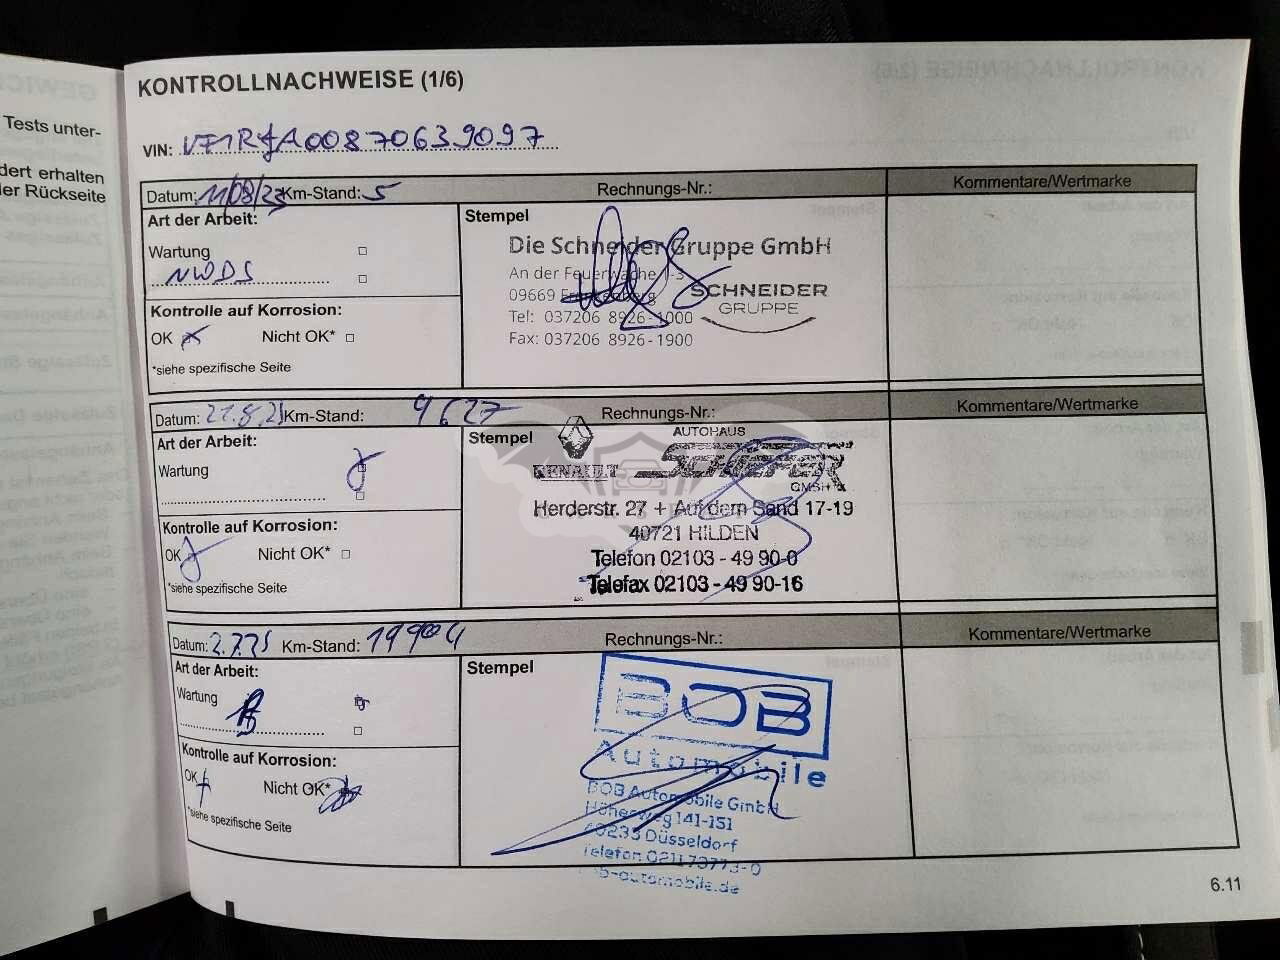 KONTROLLNACHWEISE (1/6)
Tests unter-
dert erhalten
ler Rückseite
VIN: VF1RJA00870639097
Datum: 11/08/23 Km-Stand: 5 Rechnungs-Nr.: Kommentare/Wertmarke
Art der Arbeit:
Wartung
NWDS
Kontrolle auf Korrosion:
OK Nicht OK*
*siehe spezifische Seite
Stempel
Die Schneider Gruppe GmbH
An der Feuerwache 1-3
09669 Frankenberg
Tel: 037206 8926-1000
Fax: 037206 8926-1900
SCHNEIDER
GRUPPE
Datum: Km-Stand: 9627 Rechnungs-Nr.: Kommentare/Wertmarke
Art der Arbeit:
Wartung
Kontrolle auf Korrosion:
OK Nicht OK*
*siehe spezifische Seite
Stempel
RENAULT
AUTOHAUS
GMBH
Herderstr. 27 + Auf dem Sand 17-19
40721 HILDEN
Telefon 02103 - 49 90-0
Telefax 02103 - 49 90-16
Datum: 2.7.25 Km-Stand: Rechnungs-Nr.: Kommentare/Wertmarke
Art der Arbeit:
Wartung
Kontrolle auf Korrosion:
OK Nicht OK*
*siehe spezifische Seite
Stempel
BOB
Automobile
BOB Automobile GmbH
Höherweg 141-151
40233 Düsseldorf
Telefon 0211 73773-0
bob-automobile.de
6.11